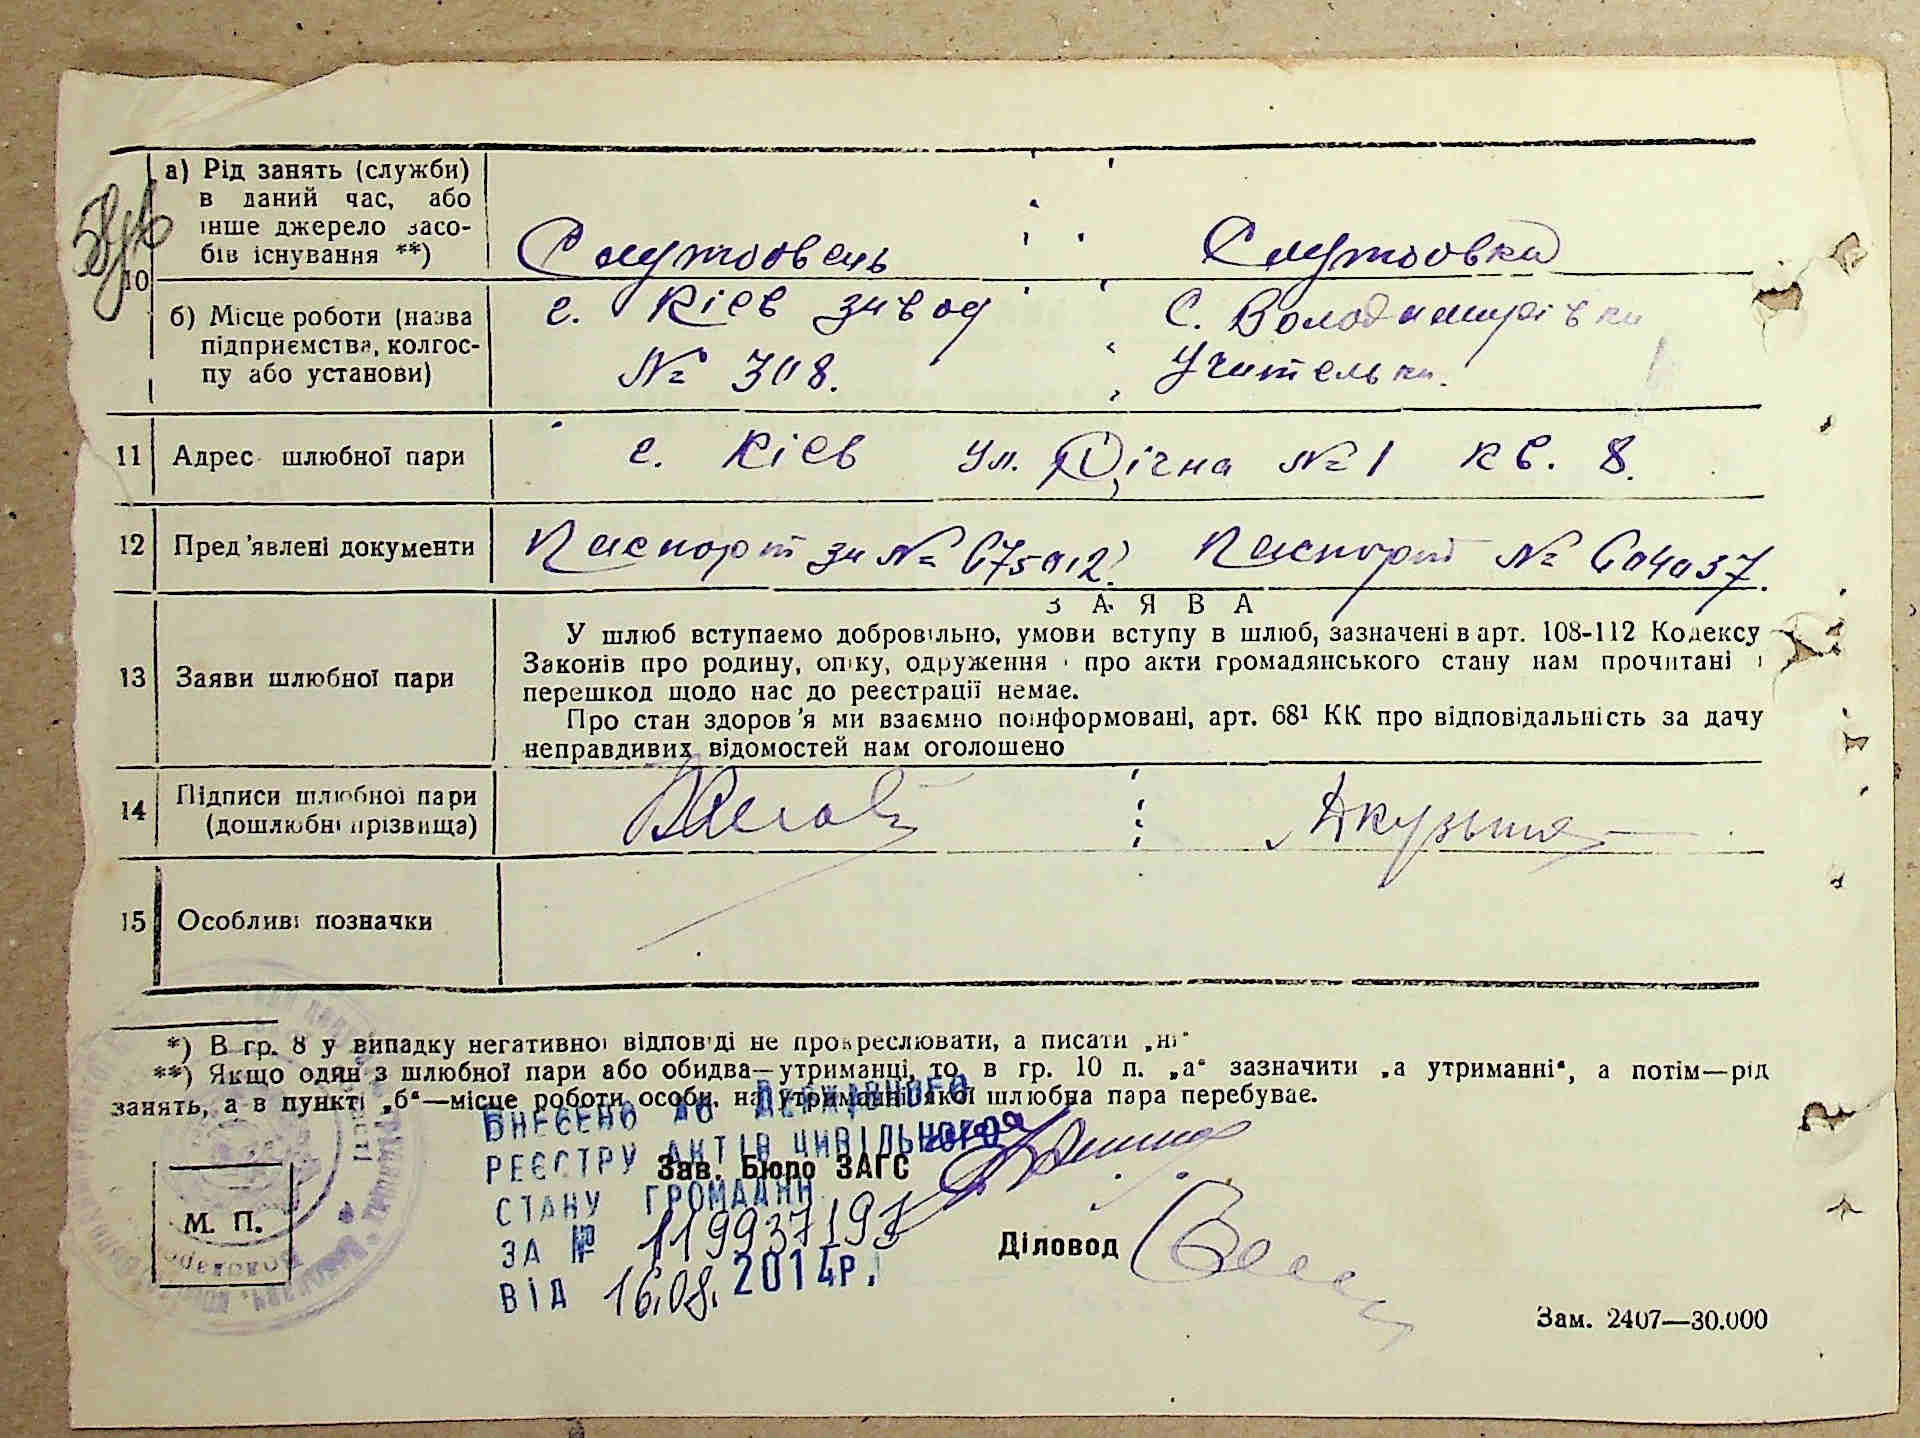 а) Рід занять (служби)
в даний час, або
інше джерело засо-
бів існування **)
Службовець Службовка
10
б) Місце роботи (назва
підприємства, колгос-
пу або установи)
с. Кієв завод
№ 308.
С. Володимирівка
Учителька.
11 Адрес шлюбної пари
с. Кієв ул. Річна № 1 кв. 8.
12 Пред'явлені документи
Паспорт за № 675012. Паспорт № 604037.
13 Заяви шлюбної пари
ЗАЯВА
У шлюб вступаємо добровільно, умови вступу в шлюб, зазначені в арт. 108-112 Кодексу
Законів про родину, опіку, одруження і про акти громадянського стану нам прочитані і
перешкод щодо нас до реєстрації немає.
Про стан здоров'я ми взаємно поінформовані, арт. 68¹ КК про відповідальність за дачу
неправдивих відомостей нам оголошено
14 Підписи шлюбної пари
(дошлюбні прізвища)
15 Особливі позначки
*) В гр. 8 у випадку негативної відповіді не прокреслювати, а писати „ні"
**) Якщо один з шлюбної пари або обидва—утриманці, то в гр. 10 п. „а" зазначити „а утриманні", а потім—рід
занять, а в пункті „б"—місце роботи особи, на утриманні якої шлюбна пара перебуває.
ВНЕСЕНО ДО ДЕРЖАВНОГО
РЕЄСТРУ АКТІВ ЦИВІЛЬНОГО
СТАНУ ГРОМАДЯН
ЗА № 119937193
ВІД 16.08.2014р.
Зав. Бюро ЗАГС
М. П.
Діловод
Зам. 2407—30.000